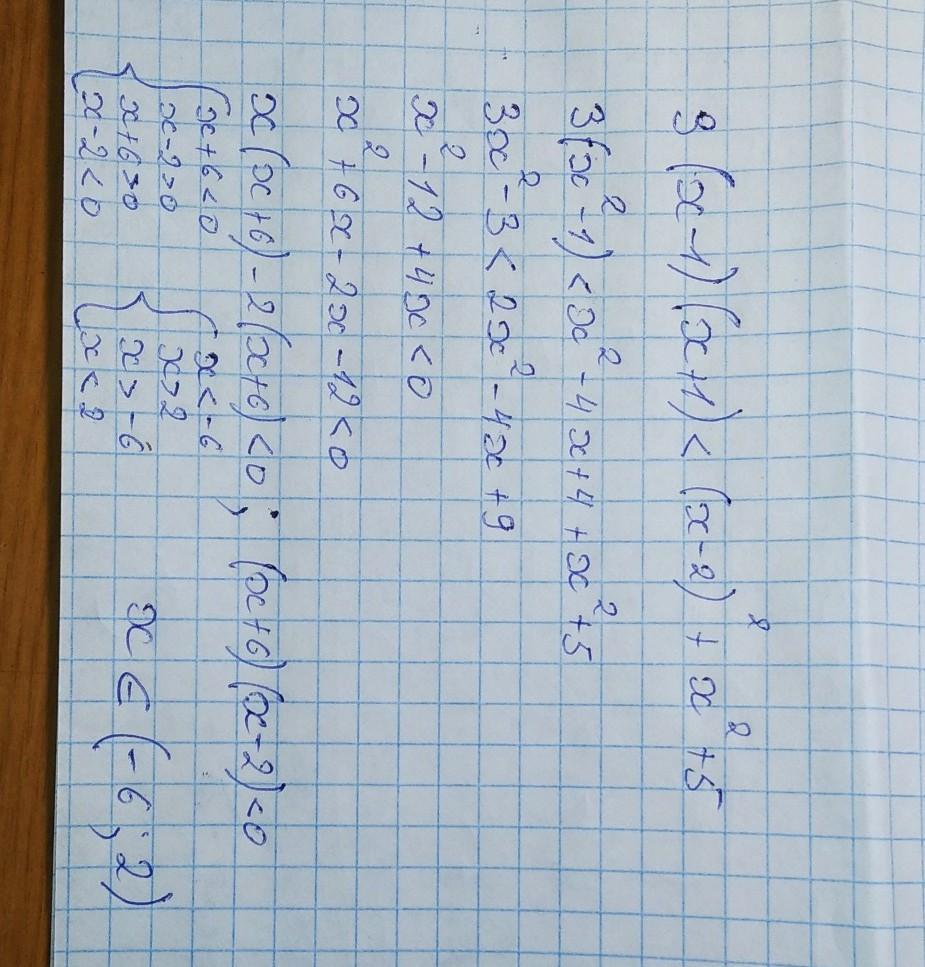 3(x-1)(x+1) < (x-2)² + x² + 5
3(x²-1) < x² - 4x + 4 + x² + 5
3x² - 3 < 2x² - 4x + 9
x² - 12 + 4x < 0
x² + 6x - 2x - 12 < 0
x(x+6) - 2(x+6) < 0; (x+6)(x-2) < 0
{x+6<0 {x<-6
x-2>0 x>2
{x+6>0 {x>-6
x-2<0 x<2
x ∈ (-6; 2)